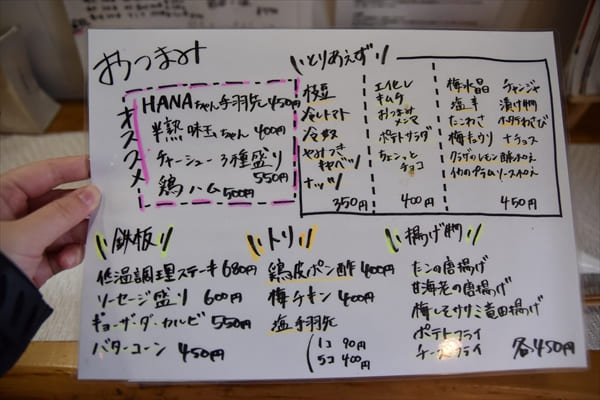 おつまみ
オススメ
HANAちゃん手羽先 450円
半熟味玉ちゃん 400円
チャーシュー3種盛り
550円
鶏ハム 500円
とりあえず
枝豆
冷しトマト
冷奴
やみつき
キャベツ
ナッツ
350円
エイヒレ
キムチ
おつまみ
メンマ
ポテトサラダ
ちょこっと
チョコ
400円
梅水晶
塩辛
たこわさ
梅キュウリ
クラゲのレモン酢かえ
イカのプラムソースかえ
チャンジャ
漬け物
ホタテわさび
ナチョス
450円
鉄板
低温調理ステーキ 680円
ソーセージ盛り 600円
ギョーザ・ダ・カルビ 550円
バターコーン 450円
トリ
鶏皮ポン酢 400円
梅チキン 400円
塩手羽先
1コ 90円
5コ 400円
揚げ物
たこの唐揚げ
甘海老の唐揚げ
梅しそササミ竜田揚げ
ポテトフライ
チーズフライ
各450円